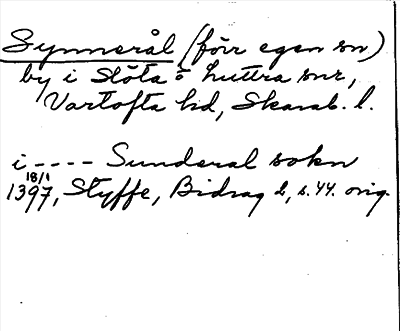 Synnerål (förr egen sn)
by i Slöta o Luttra snr,
Vartofta hd, Skarab. l.
i ---- Sunderal sokn
18/1
1397, Styffe, Bidrag 2, s. 44. orig.